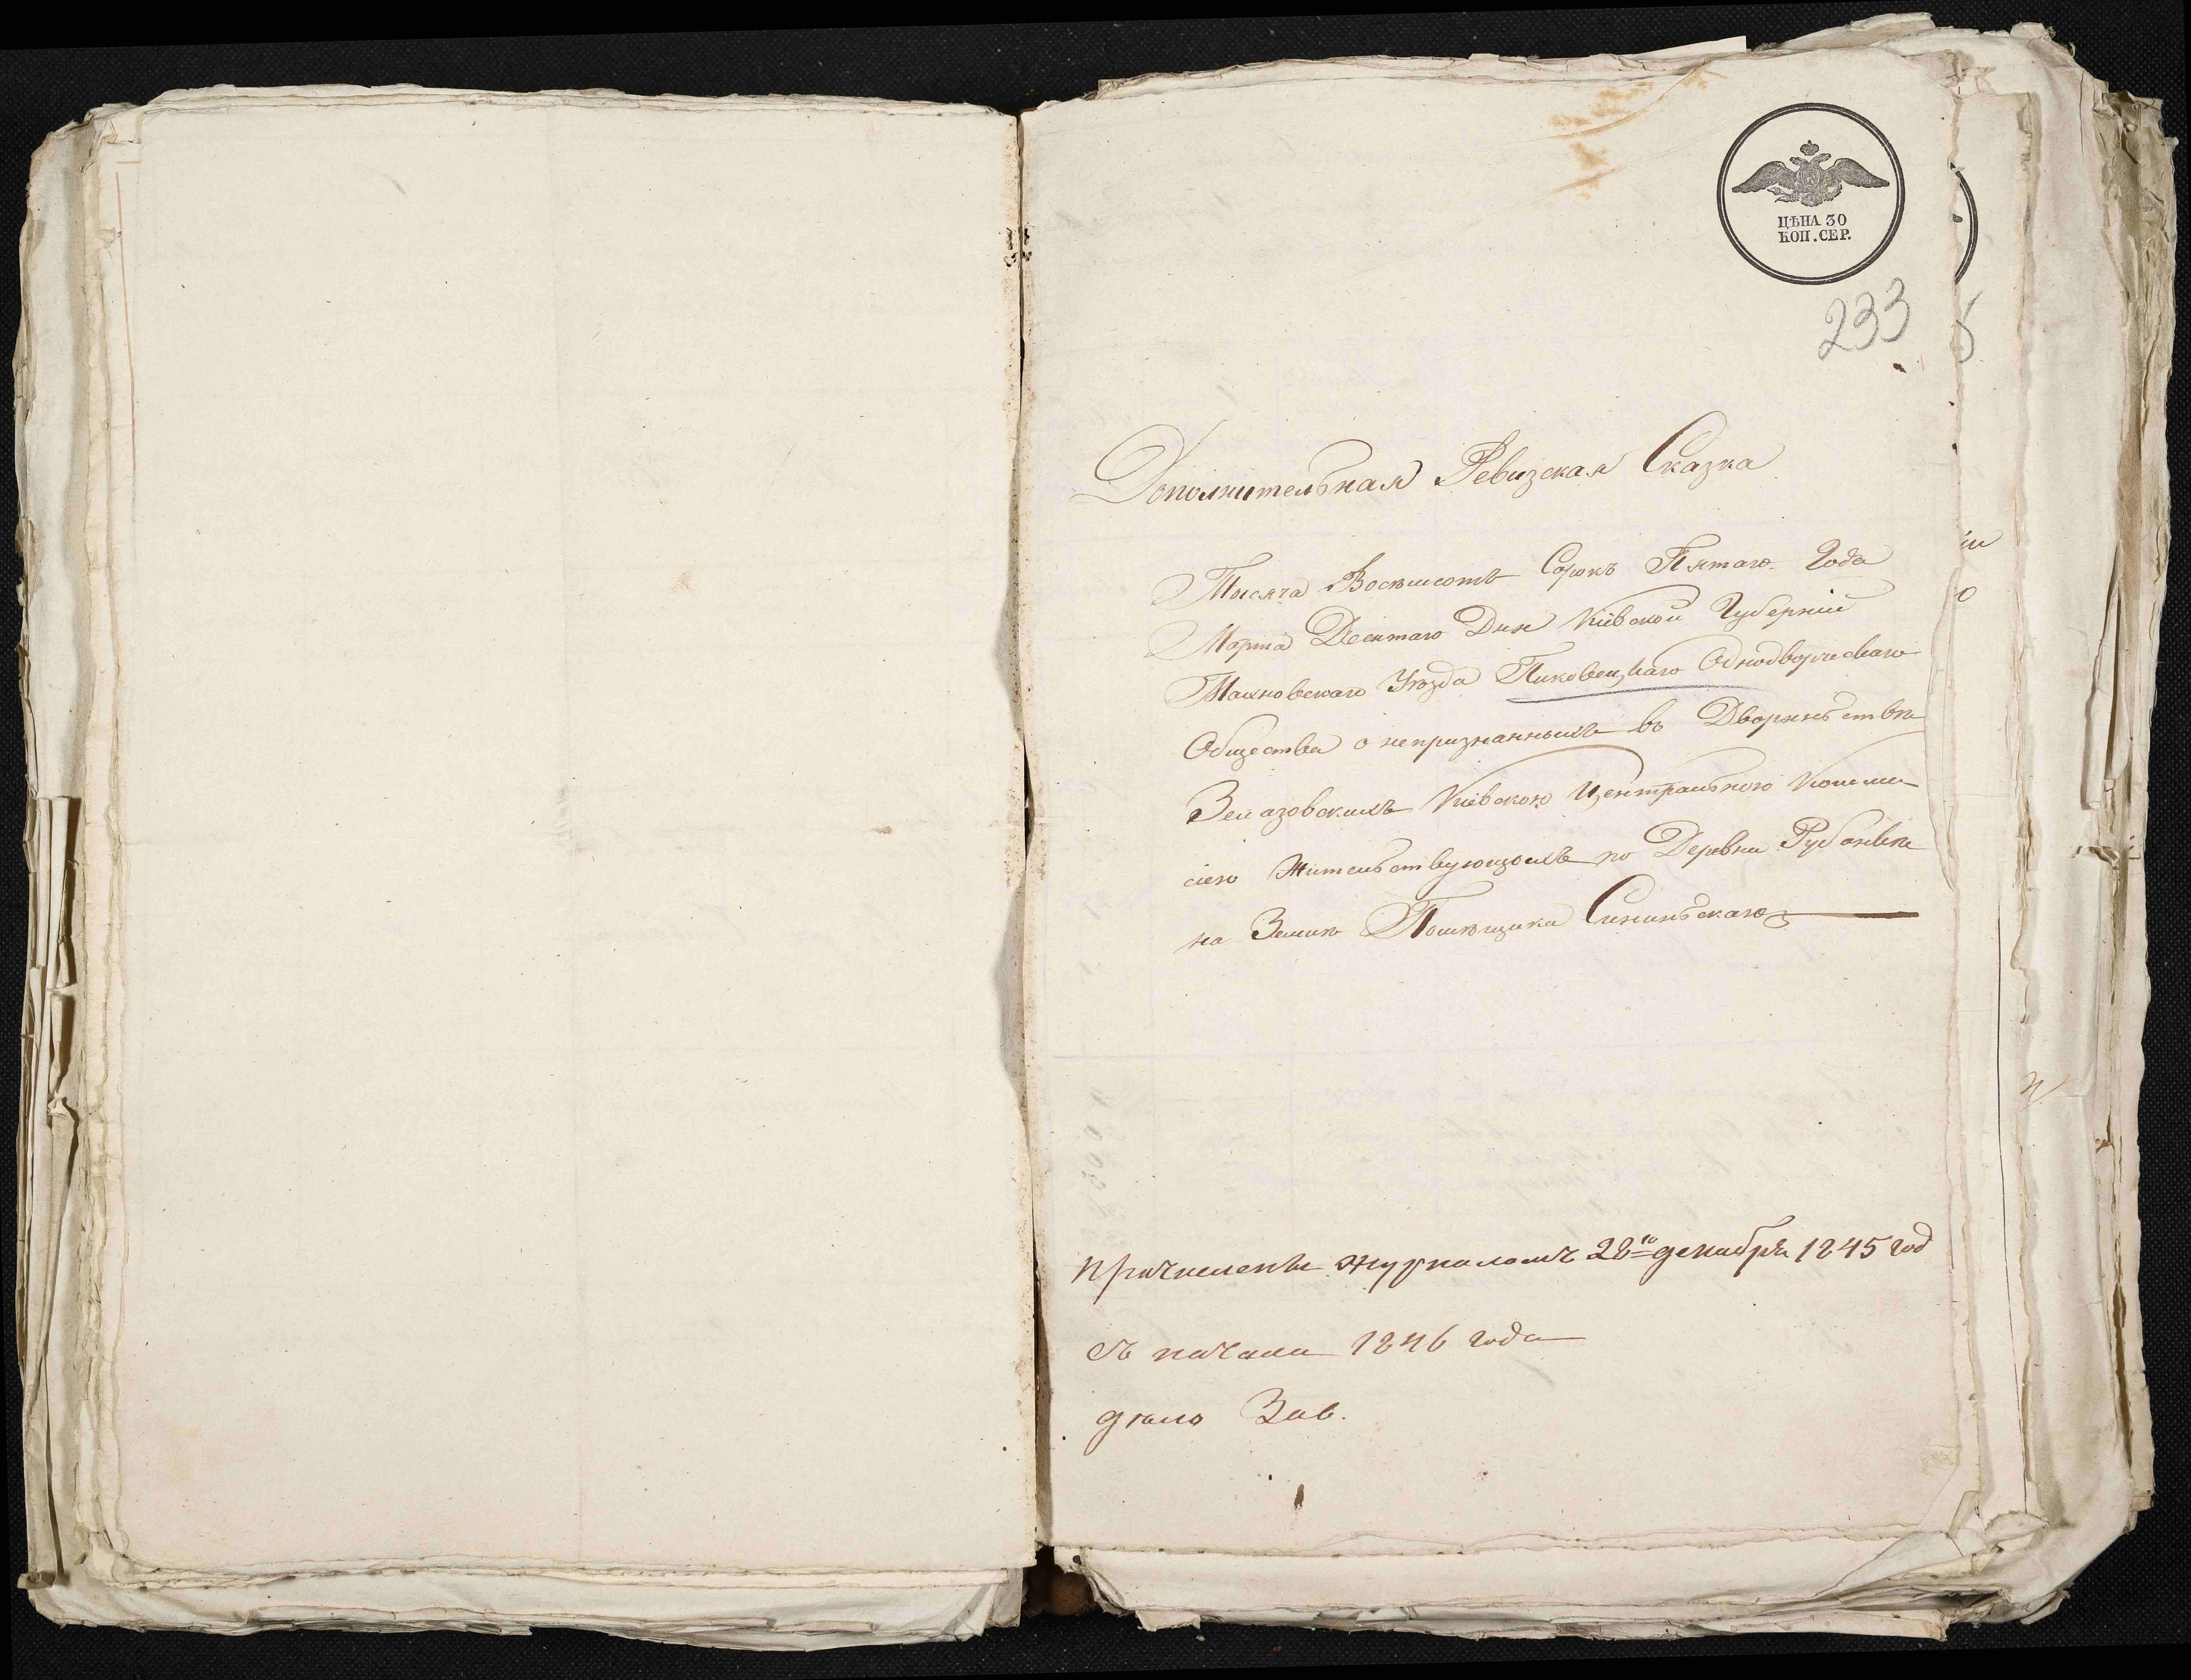 ЦѢНА 30
КОП. СЕР.
233
Дополнительная Ревизская Сказка
Тысяча Восемсотъ Сорокъ Пятаго Года
Марта Десятаго Дня Кіевской Губерніи
Махновскаго Уѣзда Пиковецкаго Однодворческаго
Общества о непризнанныхъ въ Дворянствѣ
Кіевскою Центральною Коммис
сіею Жительствующихъ по Деревни Рубанкѣ
на Землѣ Помѣщика
причислены журналомъ 28го декабря 1845 год
съ начала 1846 года
дѣло Зав.